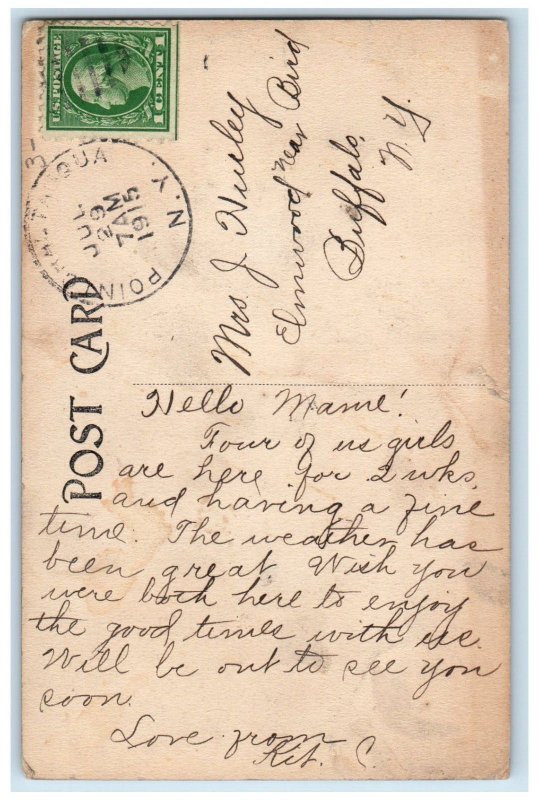 U.S. POSTAGE
1 CENT 1
JUL
29
7 AM
1915
N.Y.
POST CARD
Mrs. J Hurley
Elmwood near Bird
Buffalo,
N.Y.
Hello Mame!
Four of us girls
are here for 2 wks.
and having a fine
time. The weather has
been great. Wish you
were both here to enjoy
the good times with us.
Will be out to see you
soon.
Love from
Kit. C.